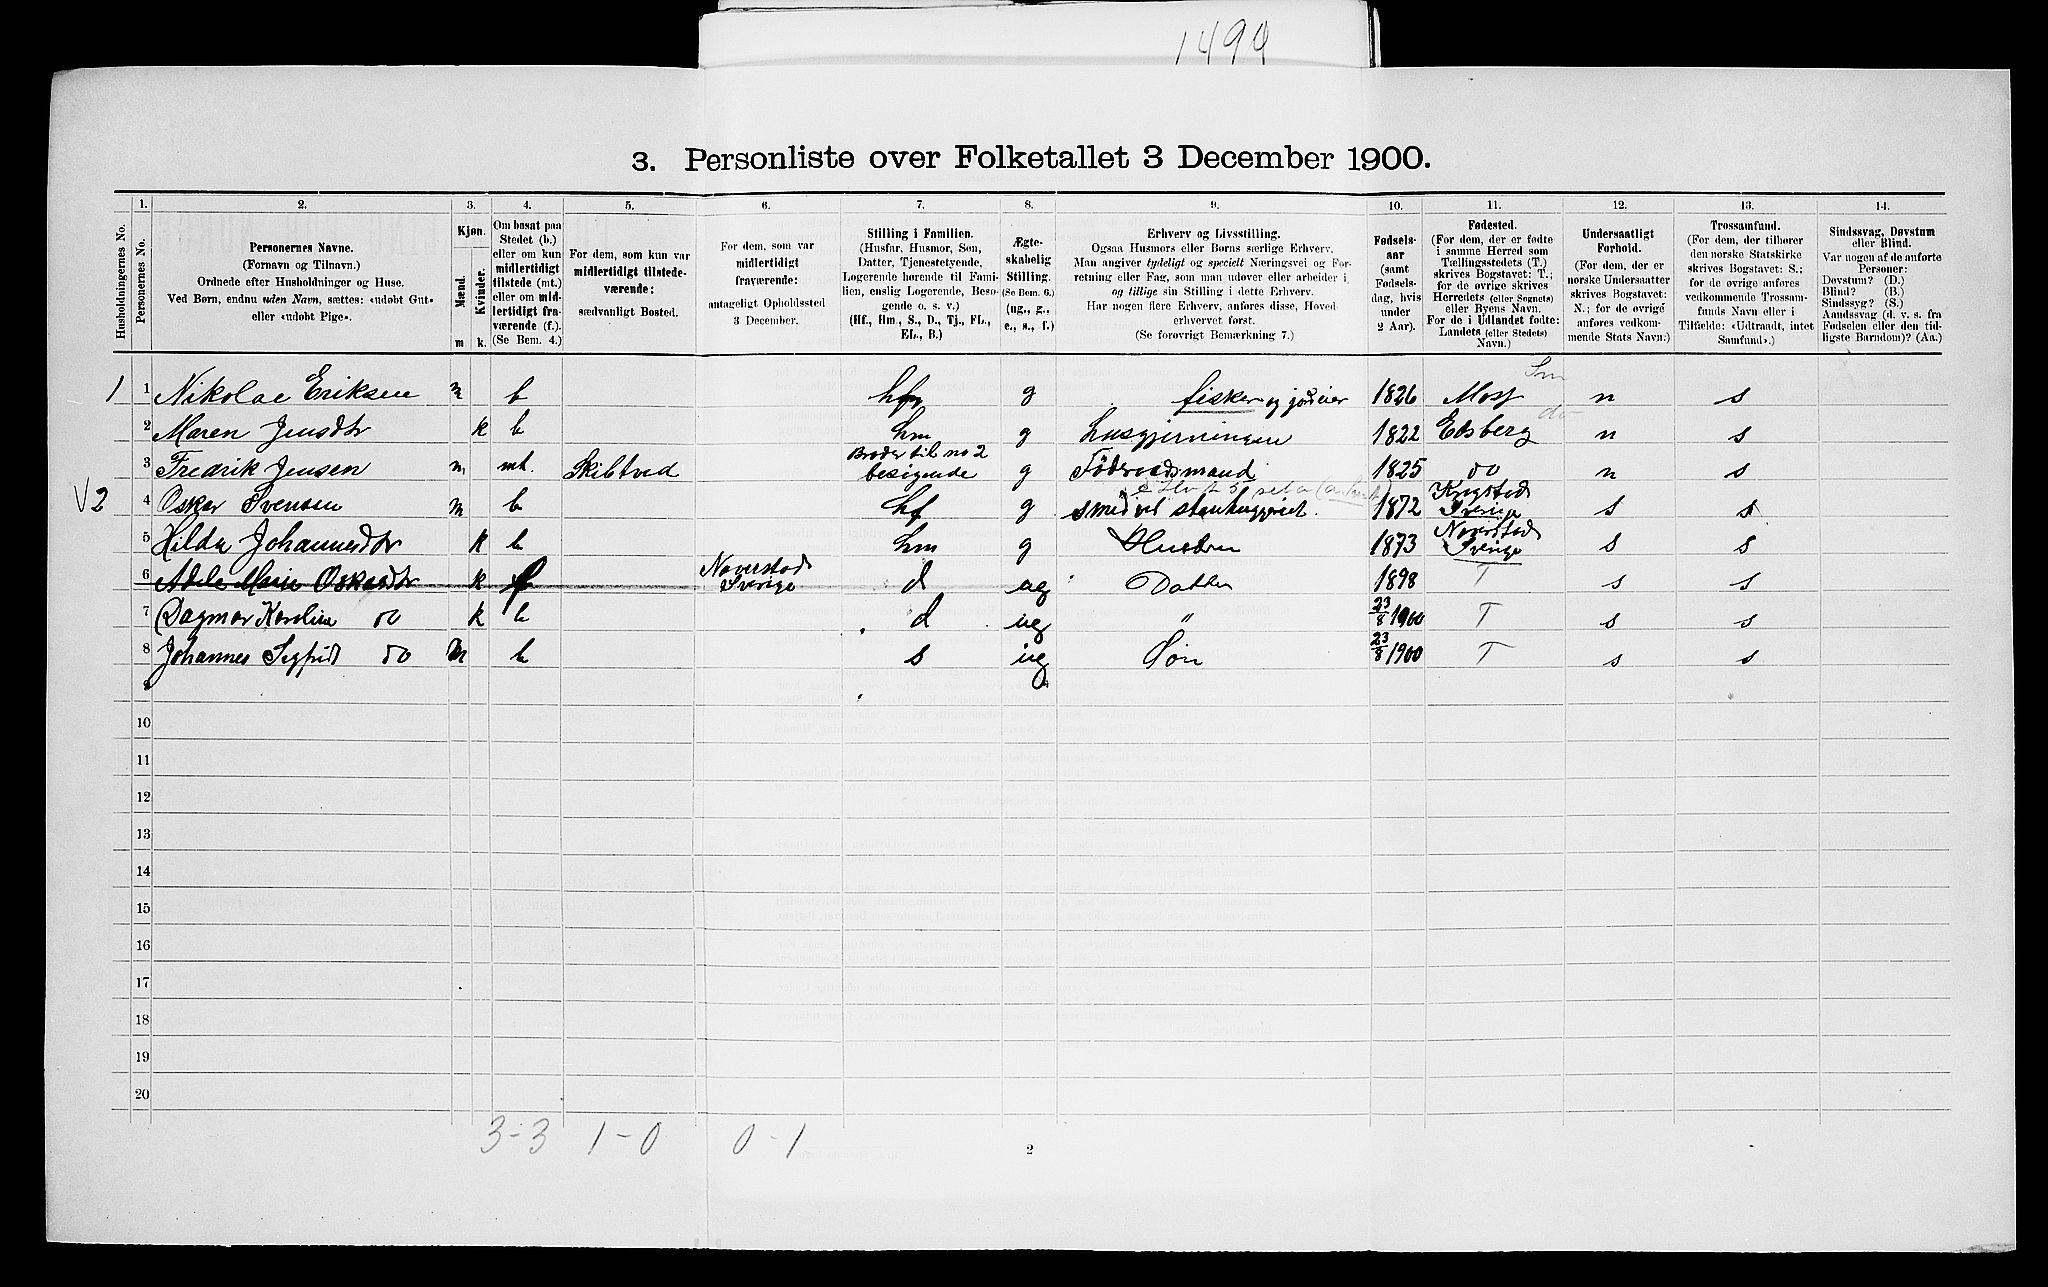 1499
3. Personliste over Folketallet 3 December 1900.
Husholdningernes No.
1. Personernes No.
2. Personernes Navne. (Fornavn og Tilnavn.) Ordnede efter Husholdninger og Huse. Ved Børn, endnu uden Navn, sættes: «udøbt Gut» eller «udøbt Pige».
3. Kjøn. Mænd. Kvinder. m k.
4. Om bosat paa Stedet (b.) eller om kun midlertidigt tilstede (mt.) eller om midlertidigt fraværende (f.). (Se Bem. 4.)
5. For dem, som kun var midlertidigt tilstedeværende: sædvanligt Bosted.
6. For dem, som var midlertidigt fraværende: antageligt Opholdssted 3 December.
7. Stilling i Familien. (Husfar, Husmor, Søn, Datter, Tjenestetyende, Logerende hørende til Familien, enslig Logerende, Besøgende o. s. v.) (Hf., Hm., S., D., Tj., FL., EL., B.)
8. Ægteskabelig Stilling. (Se Bem. 6.) (ug., g., e., s., f.)
9. Erhverv og Livsstilling. Ogsaa Husmors eller Børns særlige Erhverv. Man angiver tydeligt og specielt Næringsvei og Forretning eller Fag, som man udøver eller arbeider i, og tillige sin Stilling i dette Erhverv. Har nogen flere Erhverv, anføres disse, Hovederhvervet først. (Se forøvrigt Bemærkning 7.)
10. Fødselsaar (samt Fødselsdag, hvis under 2 Aar).
11. Fødested. (For dem, der er fødte i samme Herred som Tællingsstedets (T.) skrives Bogstavet: T.; for de øvrige skrives Herredets (eller Sognets) eller Byens Navn. For de i Udlandet fødte: Landets (eller Stedets) Navn.)
12. Undersaatligt Forhold. (For dem, der er norske Undersaatter skrives Bogstavet: N.; for de øvrige anføres vedkommende Stats Navn.)
13. Trossamfund. (For dem, der tilhører den norske Statskirke skrives Bogstavet: S.; for de øvrige anføres vedkommende Trossamfunds Navn eller i Tilfælde: «Udtraadt, intet Samfund».)
14. Sindssvag, Døvstum eller Blind. Var nogen af de anførte Personer: Døvstum? (D.) Blind? (B.) Sindssyg? (S.) Aandssvag (d. v. s. fra Fødselen eller den tidligste Barndom)? (Aa.)
1 1 Nikolae Eriksen m b hf g fisker og jordeier 1826 Moss Sm n s
2 Maren Jensdtr k b hm g husgjerningen 1822 Edsberg do n s
3 Fredrik Jensen m mt. Skibtved Broder til no 2 besøgende g Föderaadsmand 1825 do n s
V2 4 Oskar Svensen m b hf g smed ved stenhuggeriet. 1872 Sverige s s
5 Hilda Johannesdtr k b hm g Hustru 1873 Naverstad Sverige s s
6 Adele Marie Oskarsdtr k f Naverstad Sverige d ug Datter 1898 T s s
7 Dagmar Karoline do k b d ug " 23/8 1900 T s s
8 Johannes Sigfrid do m b s ug Søn 23/8 1900 T s s
9
10
11
12
13
14
15
16
17
18
19
20
3-3 1-0 0-1
2